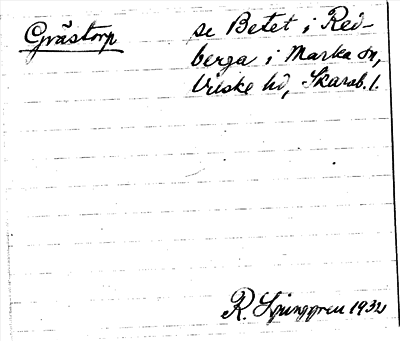 Gråstorp
se Betet i Rev-
berga i Marka sn,
Vilske hd, Skarab. l.
R. Ljunggren 1932